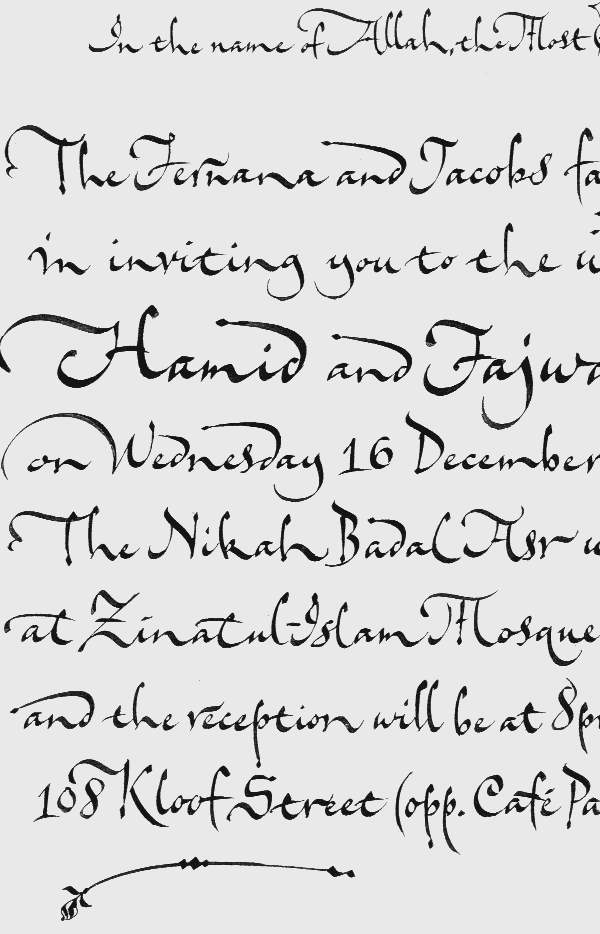 In the name of Allah, the Most
The Fernana and Jacobs fa
in inviting you to the w
Hamid and Fajwa
on Wednesday 16 December
The Nikah Badal Asr w
at Zinatul-Islam Mosque
and the reception will be at 8p
108 Kloof Street (opp. Café Pa